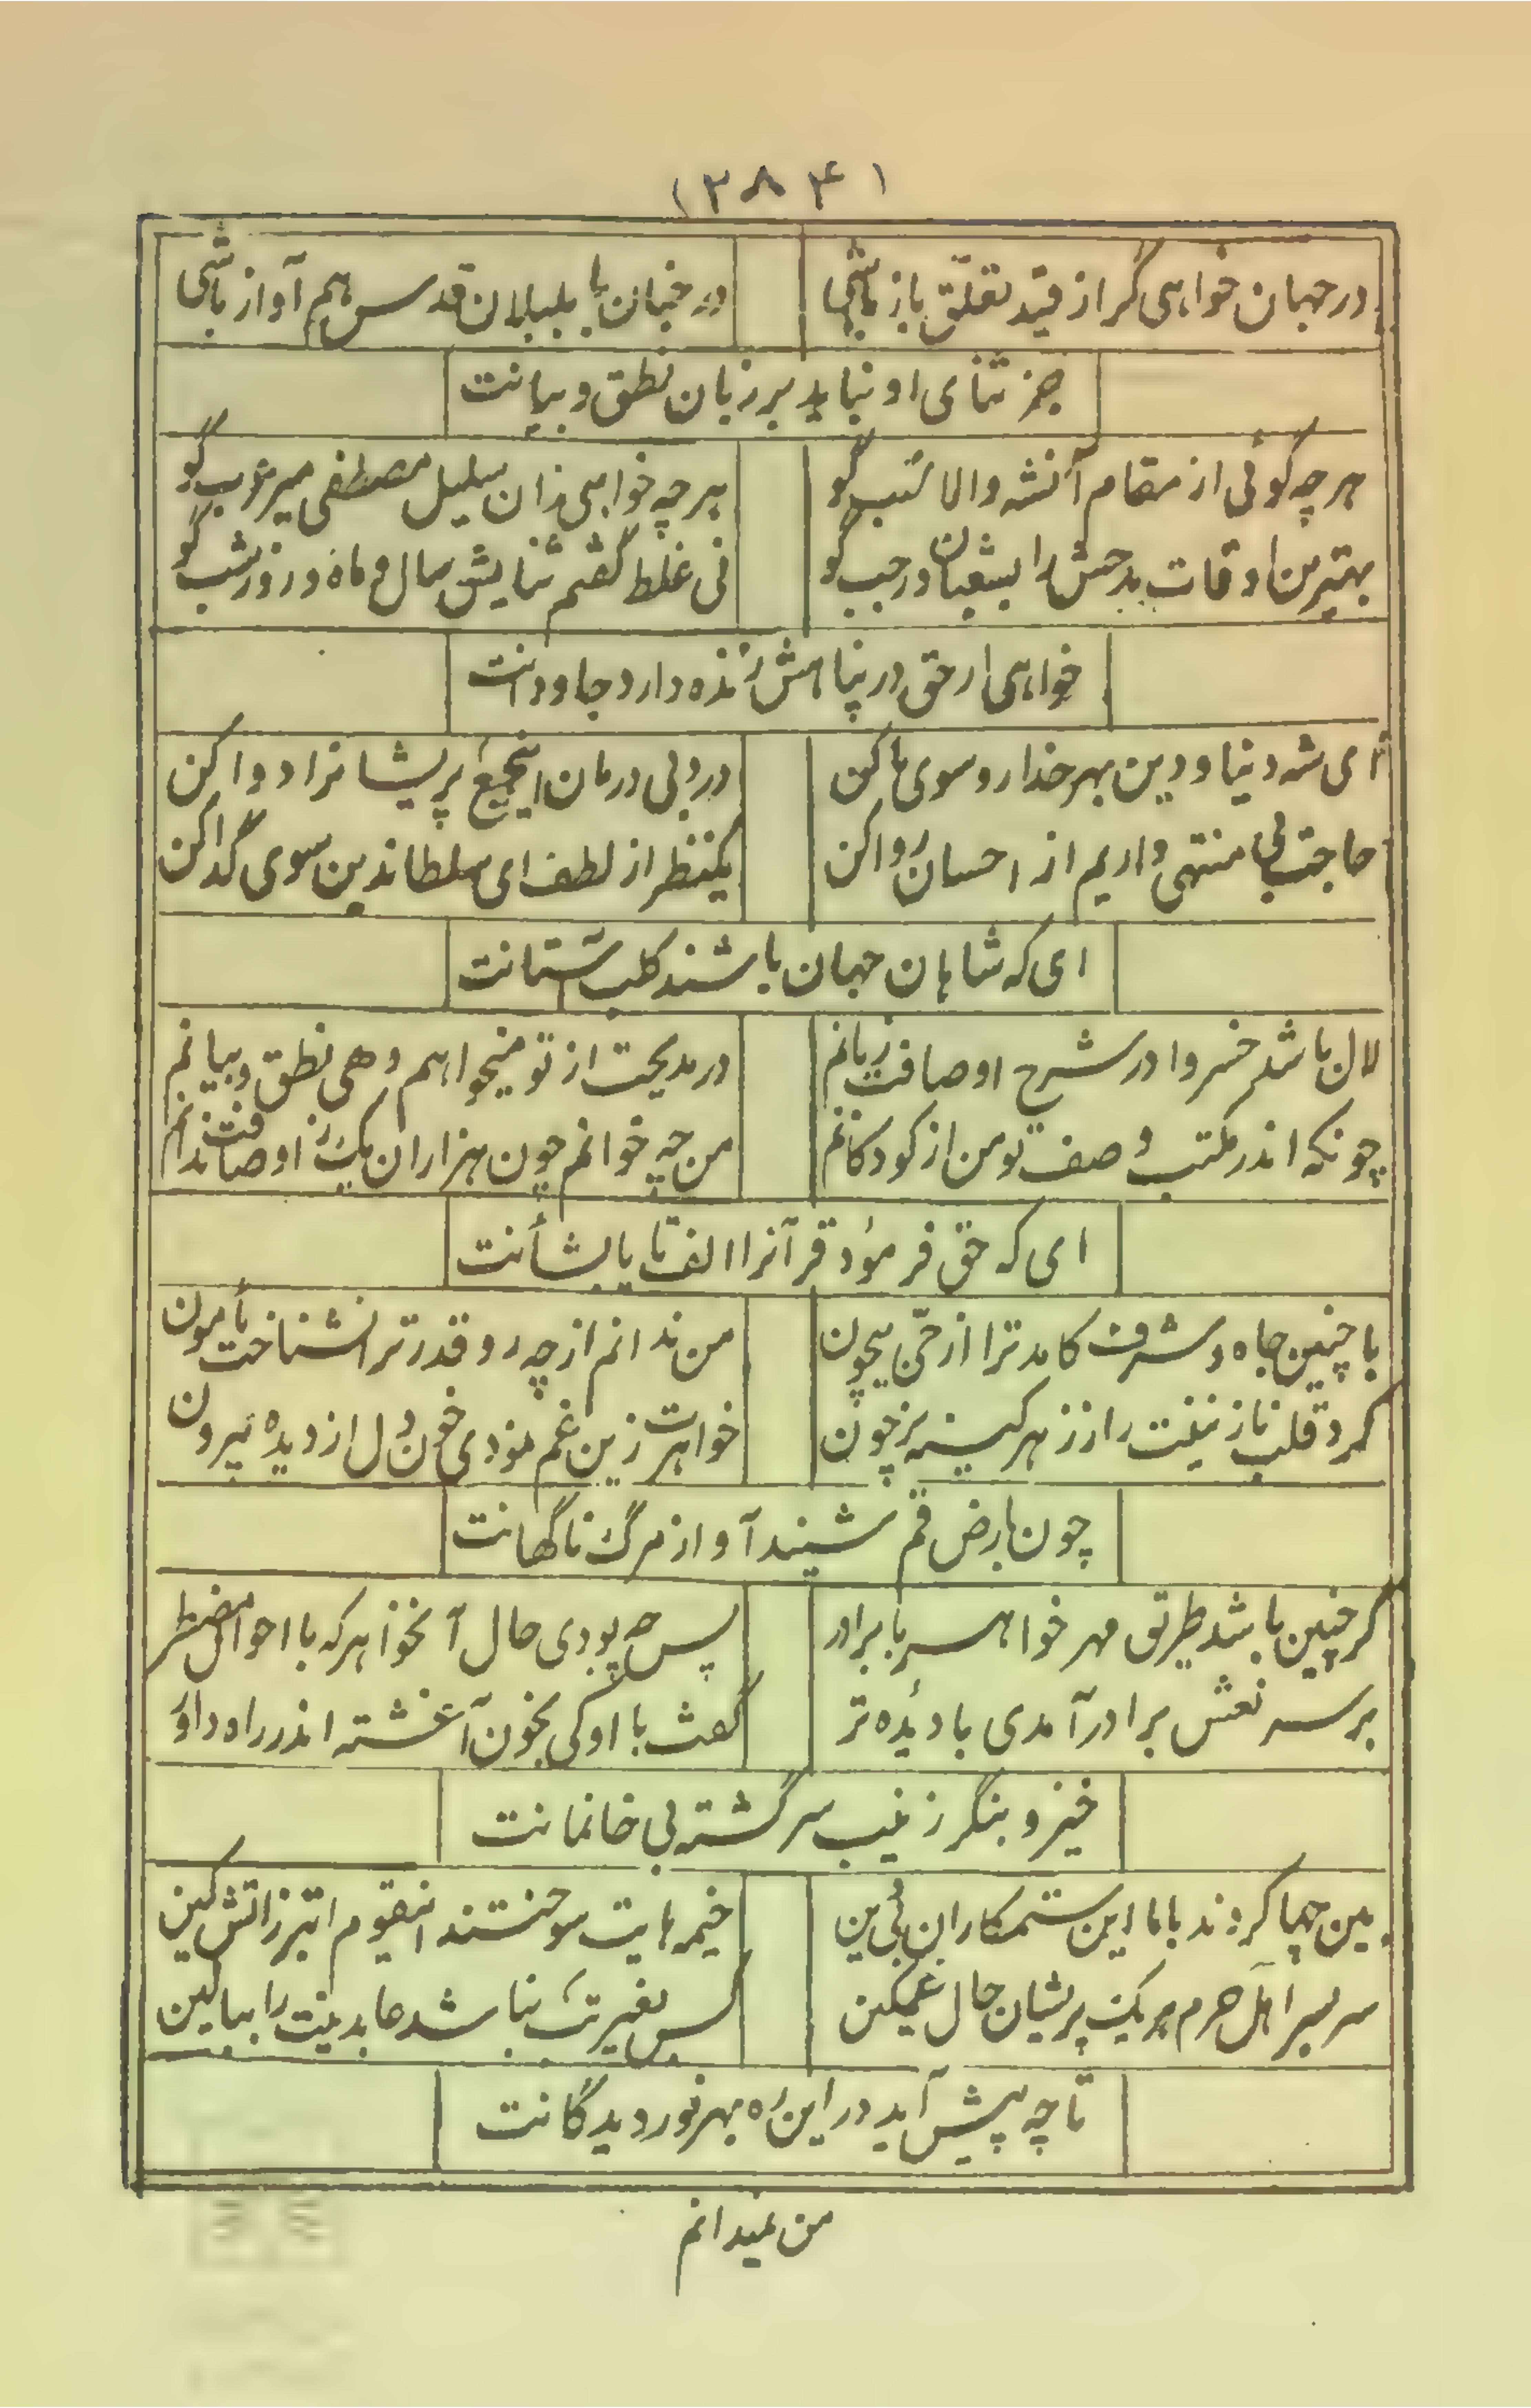 (۲۸۴)
در جهان خواهی گر از قید تعلّق باز باشی
در جنان با بلبلان قدس هم آواز باشی
جز ثنای او نباید بر زبان نطق و بیانت
هر چه گوئی از مقام آنشه والا نسب گو
هر چه خواهی زان سلیل مصطفی میر عرب گو
بهترین اوقات مدحش را بشعبان و رجب گو
نی غلط گفتم ثنایش سال و ماه و روز و شب گو
خواهی ار حق در پناهش زنده دارد جاودانت
ای شه دنیا و دین بهر خدا رو سوی ما کن
درد بی درمان اینجمع پریشانرا دوا کن
حاجت بی منتهی داریم از احسان روا کن
یکنظر از لطف ای سلطاندین سوی گدا کن
ای که شاهان جهان باشند کلب آستانت
لال باشد خسروا در شرح اوصافت زبانم
در مدیحت از تو میخواهم دهی نطق و بیانم
چونکه اندر مکتب وصف تو من از کودکانم
من چه خوانم چون هزاران یک ز اوصافت ندانم
ای که حق فرمود قرآنرا الف تا یا بشأنت
با چنین جاه و شرف کامد ترا از حیّ بیچون
من ندانم از چه رو قدر ترا نشناخت مأمون
کرد قلب نازنینت را ز زهر کینه پر خون
خواهرت زین غم نمودی خون دل از دیده بیرون
چون بارض قم شنید آواز مرگ ناگهانت
گر چنین باشد طریق مهر خواهر با برادر
پس چه بودی حال آنخواهر که با احوال مضطر
بر سر نعش برادر آمدی با دیده تر
گفت با او کی بخون آغشته اندر راه داور
خیز و بنگر زینب سرگشته بی خانمانت
بین چها کردند با ما این ستمکاران بی دین
خیمه هایت سوختند اینقوم ابتر زاتش کین
سر بسر اهل حرم هر یک پریشان حال غمگین
کس بغیر تب نباشد عابدینت را ببالین
تا چه پیش آید در این ره بهر نور دیدگانت
من نمیدانم